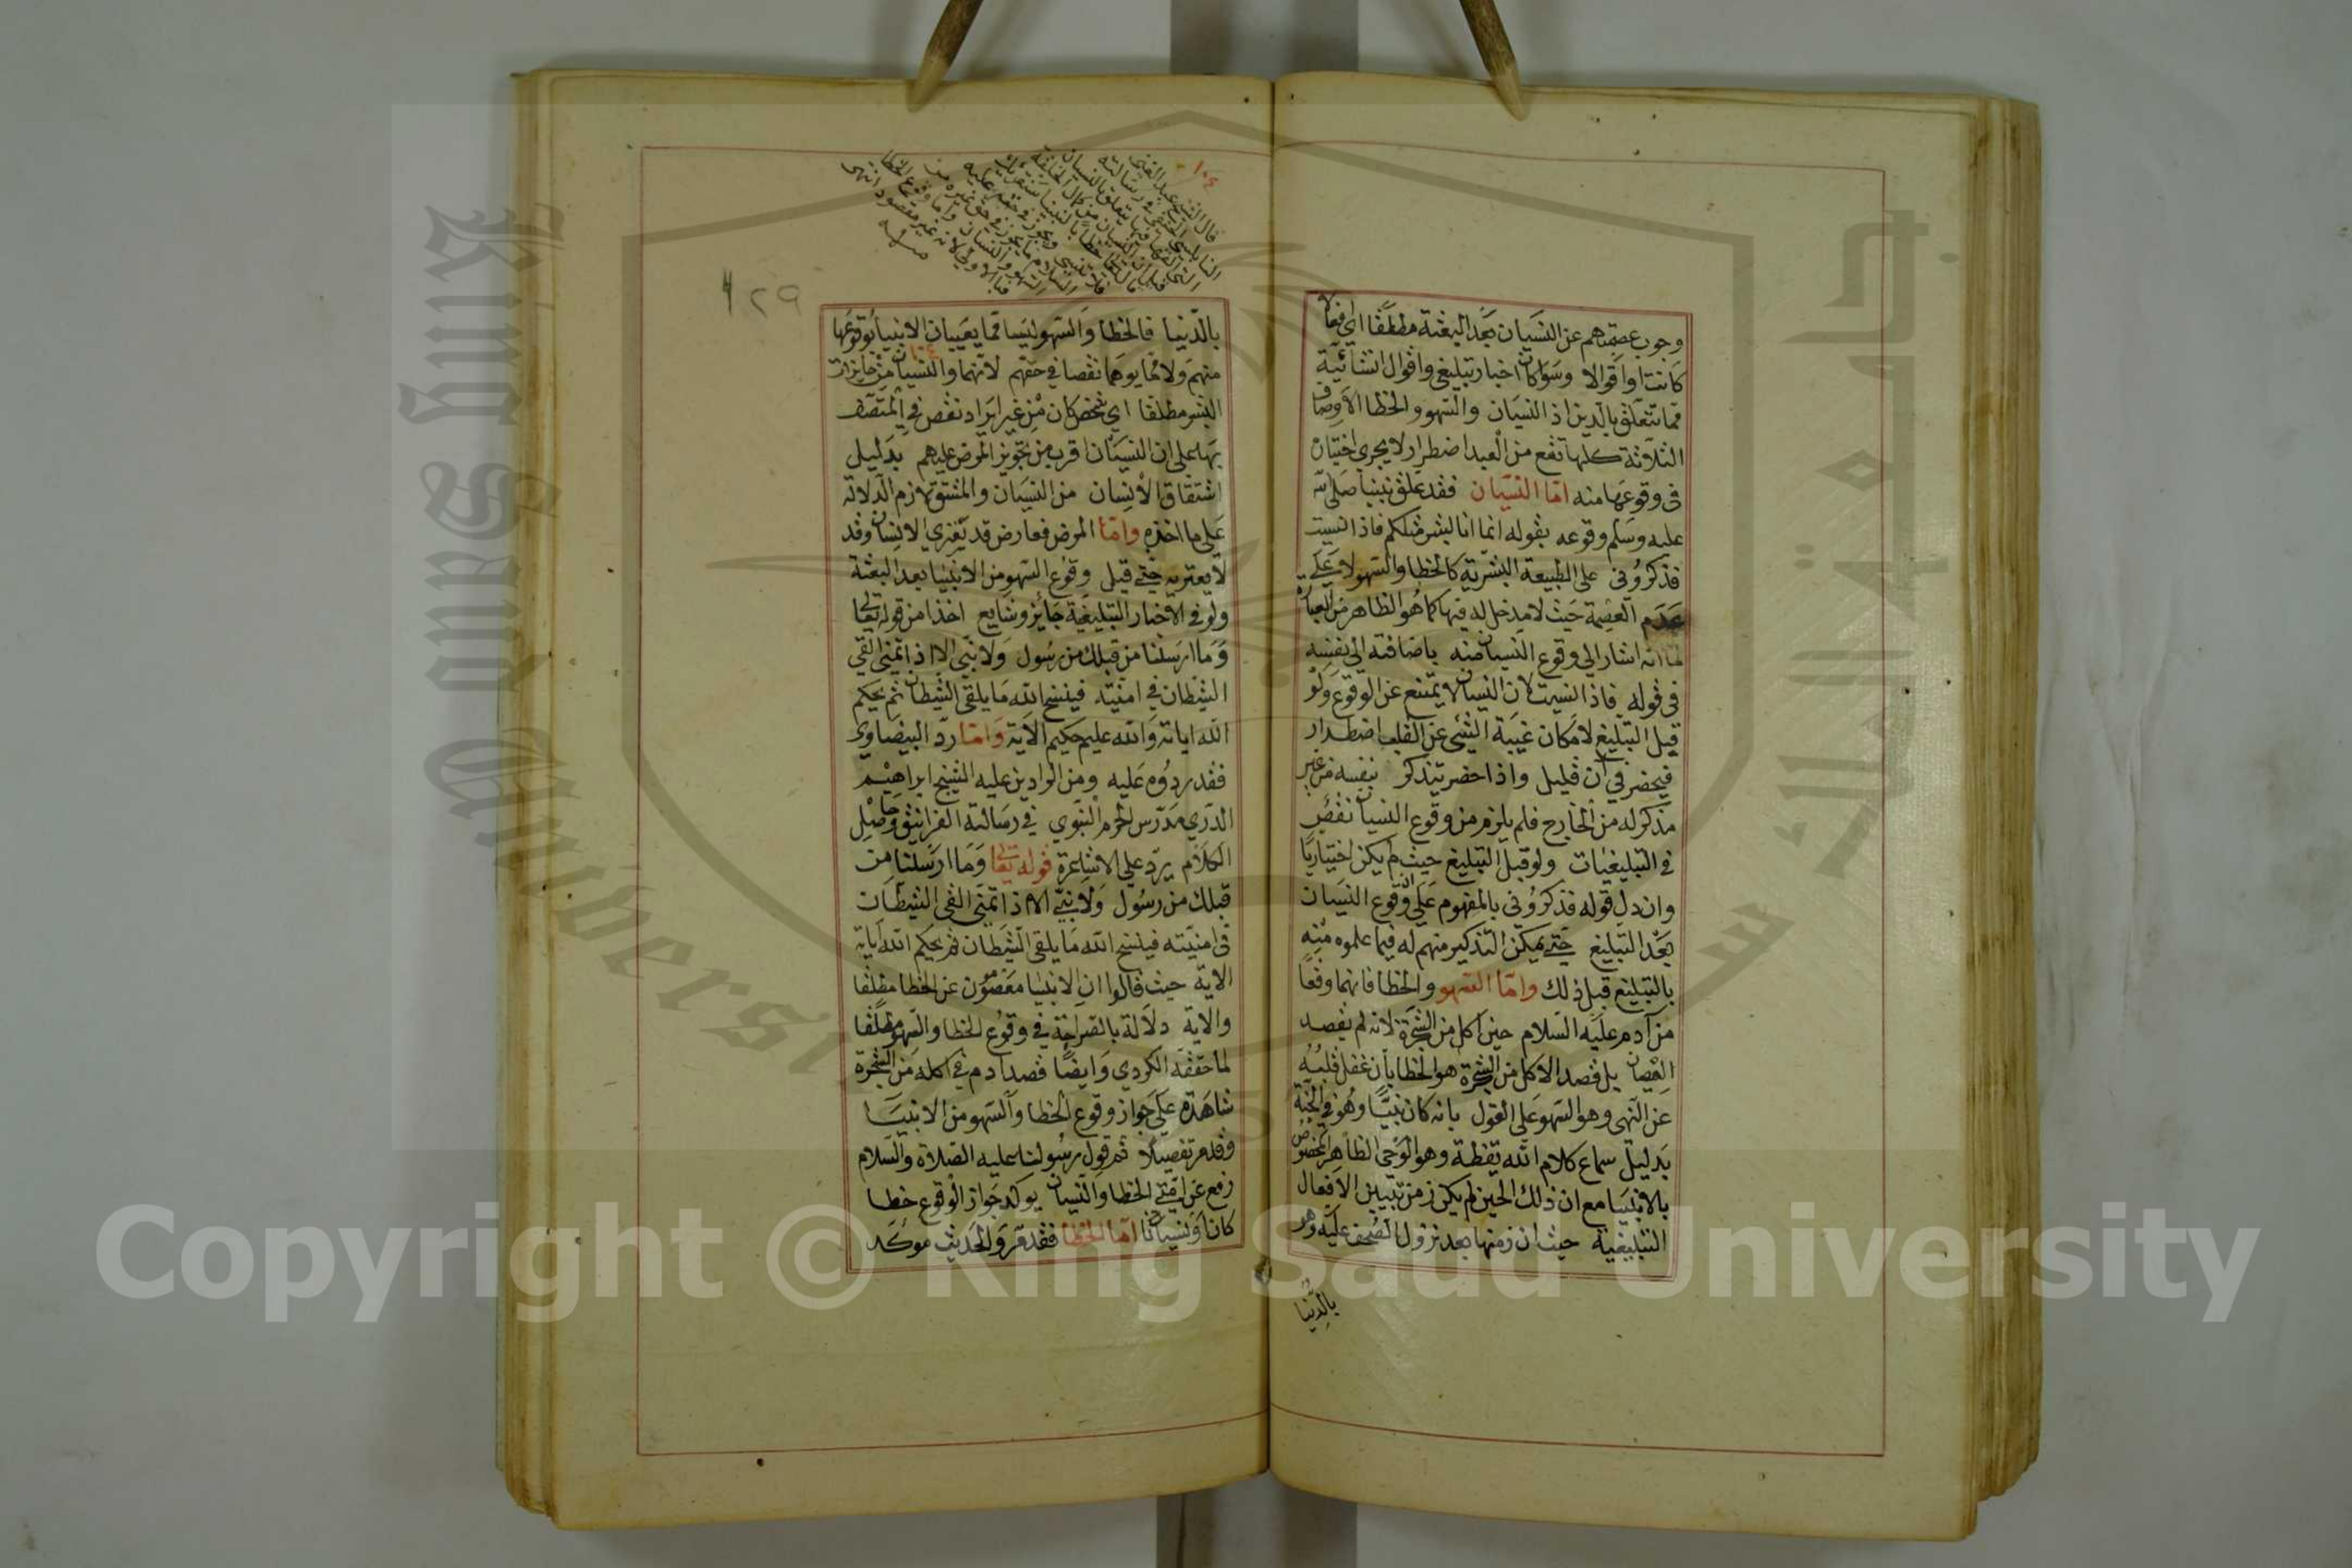 وجوب عصمتهم عن النسيان بعد البعثة مطلقا اي افعالا
كانت او اقوالا وسواء كان اخبار تبليغي واقوال انشائية
مما تتعلق بالدين اذ النسيان والسهو والخطا الاوصاف
الثلاثة كلها تقع من العبد اضطرار لا يجري اختيار
في وقوعها منه اما النسيان فقد علق نبينا صلى الله
عليه وسلم وقوعه بقوله انما انا بشر مثلكم فاذا نسيت
فذكروني على الطبيعة البشرية كالخطا والسهو لا على
عدم العصمة حيث لا مدخل له فيها كما هو الظاهر من العبارة
لما انه اشار الي وقوع النسيان منه باضافته الي نفسه
في قوله فاذا نسيت لان النسيان لا يمتنع عن الوقوع ولو
قبل التبليغ لامكان غيبة الشئ عن القلب اضطرار
فيحضر في آن قليل واذا حضر تتذكر بنفسه من غير
مذكر له من الخارج فلم يلزم من وقوع النسيان نقص
في التبليغيات ولو قبل التبليغ حيث لم يكن اختياريا
وان دل قوله فذكروني بالمفهوم على ان وقوع النسيان
بعد التبليغ حتي يمكن التذكير منهم له فيما علموه منه
بالتبليغ قبل ذلك واما السهو والخطا فانهما وقعا
من آدم عليه السلام حين اكل من الشجرة لانه لم يقصد
العصيان بل قصد الاكل من الشجرة هو الخطا بان غفل قلبه
عن النهي وهو السهو على القول بانه كان نبيا وهو في الجنة
بدليل سماع كلام الله يقظة وهو الوحي الظاهر المخصوص
بالانبيا مع ان ذلك الحين لم يكن زمن تبيين الافعال
التبليغية حيث ان زمنها بعد نزول الصحف عليه وهو
بالدنيا
١٠٤
قال الشيخ عبد الغني
النابلسي
٢٩
بالدنيا فالخطا والسهو ليسا مما يعيبان الانبيا بوقوعها
منهم ولا مما يوهما نقصا في حقهم لانهما والنسيان من جايزات
البشر مطلقا اي شخص كان من غير ايراد نقص في المتصف
بها على ان النسيان اقرب من تجويز المرض عليهم بدليل
اشتقاق الانسان من النسيان والمشتق لازم الدلالة
على ما اخذه واما المرض فعارض قد يعتري الانسان وقد
لا يعتريه حتي قيل وقوع السهو من الانبيا بعد البعثة
ولو في الاخبار التبليغية جائز وشايع اخذا من قوله تعالى
وما ارسلنا من قبلك من رسول ولا نبي الا اذا تمني القي
الشيطان في امنيته فينسخ الله ما يلقي الشيطان ثم يحكم
الله اياته والله عليم حكيم الاية واما رد البيضاوي
فقد ردوه عليه ومن الرادين عليه الشيخ ابراهيم
الدري مدرس الحرم النبوي في رسالته الغرانيق وحاصل
الكلام يرد علي الاشاعرة قوله تعالى وما ارسلنا من
قبلك من رسول ولا نبي الا اذا تمنى القى الشيطان
في امنيته فينسخ الله ما يلقي الشيطان ثم يحكم الله آياته
الاية حيث قالوا ان الانبيا معصومون عن الخطا مطلقا
والاية دلالة بالصراحة في وقوع الخطا والسهو مطلقا
لما حققه الكردي وايضا قصد ادم في اكله من الشجرة
شاهدة على جواز وقوع الخطا والسهو من الانبيا
وقد مر تفصيلا ثم قول رسولنا عليه الصلاة والسلام
رفع عن امتي الخطا والنسيان يوكد جواز الوقوع خطا
كانا ونسيانا اما الخطا فقد مر والحديث موكد
King Saud University
Copyright © King Saud University